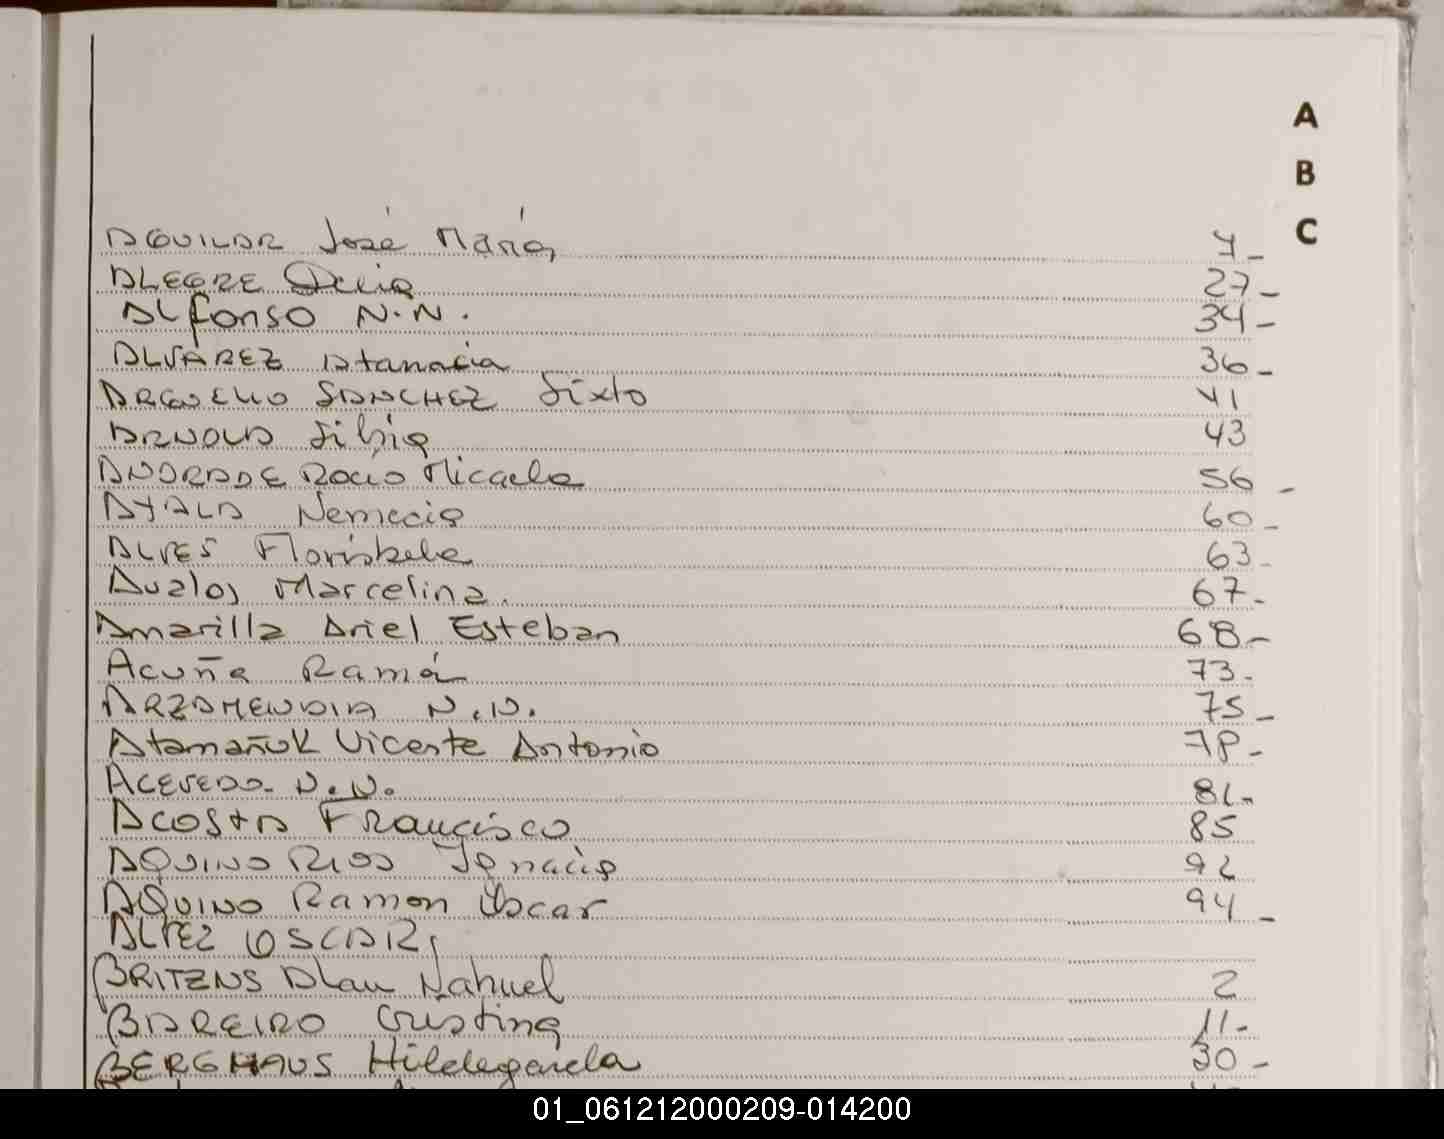 A
B
C
AGUILAR José María 7-
ALEGRE Delia 27-
ALfonso N.N. 34-
ALVAREZ Atanacia 36-
ARGUELLO SANCHEZ Sixto 41
ARNOLD Silvia 43
ANDRADE Rocio Micaela 56-
AYALA Nemecia 60-
ALVES Floriskela 63-
Avalos Marcelina. 67-
Amarilla Ariel Esteban 68-
Acuña Ramón 73-
ARZAMENDIA N.N. 75-
Atamañuk Vicente Antonio 78-
ACEVEDO- N.N. 81-
ACOSTA Francisco 85
AQUINO RIOS Ignacio 92
AQUINO Ramon Oscar 94-
ALVEZ OSCAR
BRITZNS Alan Nahuel 2
BAREIRO Cristina 11-
BERGHAUS Hildegarda 30-
01_061212000209-014200